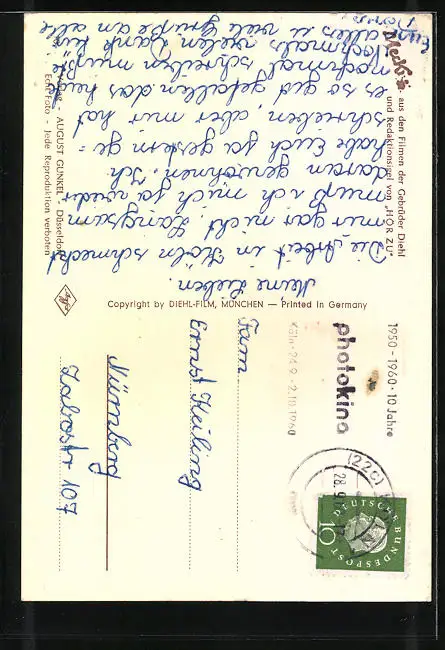 Mecki
aus den Filmen der Gebrüder Diehl
und Redaktionsigel von "HÖR ZU"
Meine Lieben.
Die Arbeit in Köln schmeckt
mir gar nicht. Langsam
muß ich mich ja wieder
daran gewöhnen. Ich
habe Euch ja gestern ge-
schrieben, aber mir hat
es so gut gefallen das heute
nochmal schreiben mußte
Nochmals vielen Dank für
alles u viele Grüße an alle
Euer
Verlag - AUGUST GUNKEL - Düsseldorf
Echt Foto - Jede Reproduktion verboten
Agfa
Copyright by DIEHL-FILM, MÜNCHEN — Printed in Germany
1950-1960·10 Jahre
photokina
Köln·24.9.-2.10.1960
(22c)
28.9.
DEUTSCHE BUNDESPOST
10
Fam
Ernst Keiling
Nürnberg
107